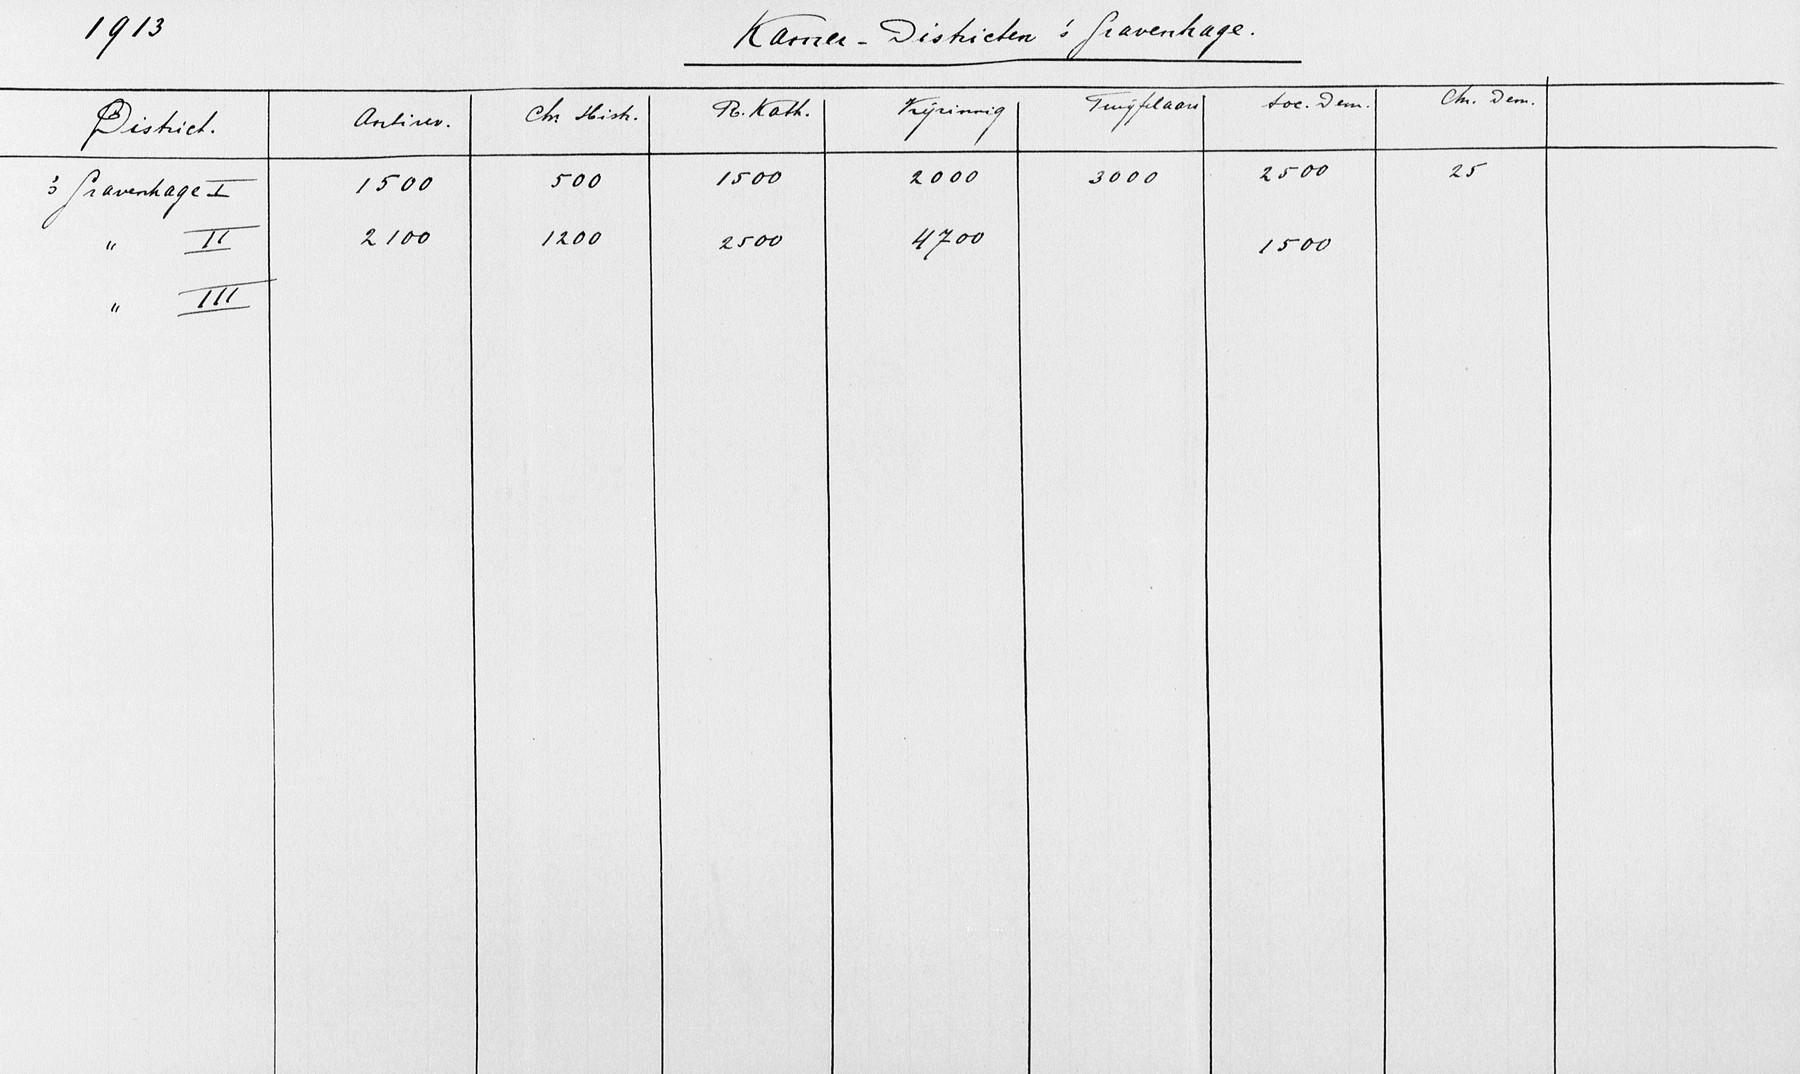 1913 Kamer-Districten 's Gravenhage.
District. Antirev. Chr Hist. R. Kath. Vrijzinnig Twijfelaars Soc. Dem. Chr. Dem.
's Gravenhage I 1500 500 1500 2000 3000 2500 25
" II 2100 1200 2500 4700 1500
" III